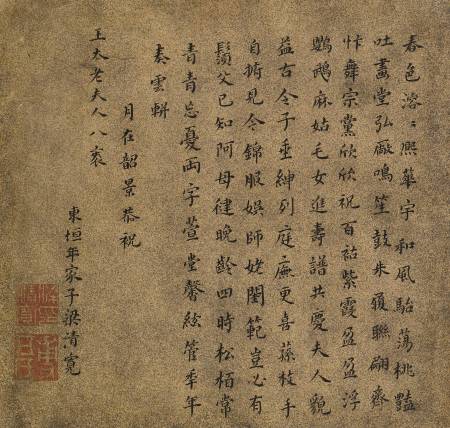 春色溶〻熙華宇和風駘蕩桃豔
吐畫堂弘敞鳴笙鼓朱履聯翩齊
忭舞宗黨欣欣祝百祜紫霞盈盈浮
鸚鵡麻姑毛女進壽譜共慶夫人貌
益古令子垂紳列庭廡更喜蓀枝手
自撫見今錦服娛師姥閨範豈必有
鬚父已知阿母健晚齡四時松栢常
青青忘憂兩字萱堂馨絃管秊年
奏雲輧
月在韶景恭祝
王太老夫人八袠
東垣年家子梁清寬